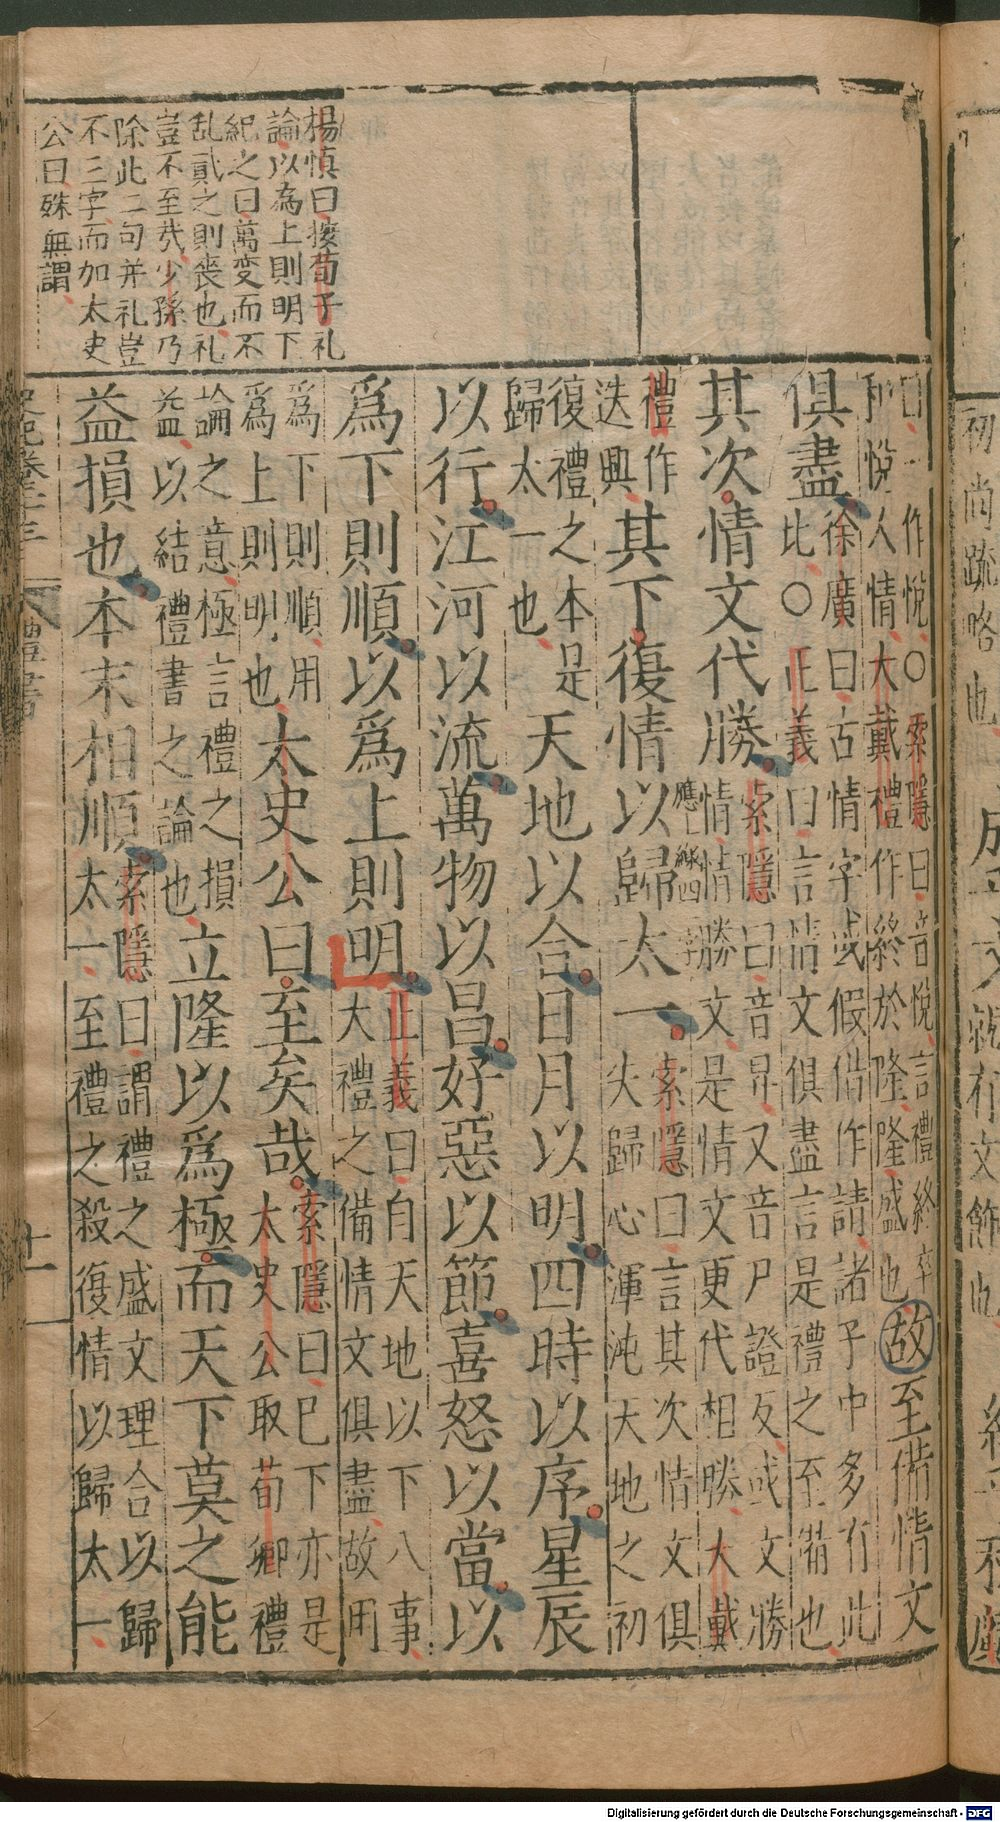 楊慎曰按荀子礼
論以為上則明下
紀之曰萬変而不
乱貳之則丧也礼
豈不至㦲少孫乃
除此二句并礼豈
不三字而加太史
公曰殊無謂
曰 作悅〇索隱曰音悅言禮終卒
和悅人情大戴禮作終於隆隆盛也故至備情文
俱盡徐廣曰古情字或假借作請諸子中多有此
比〇正義曰言情文俱盡言是禮之至備也
其次情文代勝索隱曰音昇又音尸證反或文勝
情情勝文是情文更代相勝大戴
禮作
迭興其下復情以歸太一索隱曰言其次情文俱
失歸心渾沌天地之初
復禮之本是
歸太一也天地以合日月以明四時以序星辰
以行江河以流萬物以昌好惡以節喜怒以當以
為下則順以為上則明正義曰自天地以下八事
大禮之備情文俱盡故用
為下則順用
為上則明也太史公曰至矣哉索隱曰已下亦是
太史公取荀卿禮
論之意極言禮之損
益以結禮書之論也立隆以為極而天下莫之能
益損也本末相順索隱曰謂禮之盛文理合以歸
太一至禮之殺復情以歸太一
禮書
十一
初尚疏略也
Digitalisierung gefördert durch die Deutsche Forschungsgemeinschaft - DFG